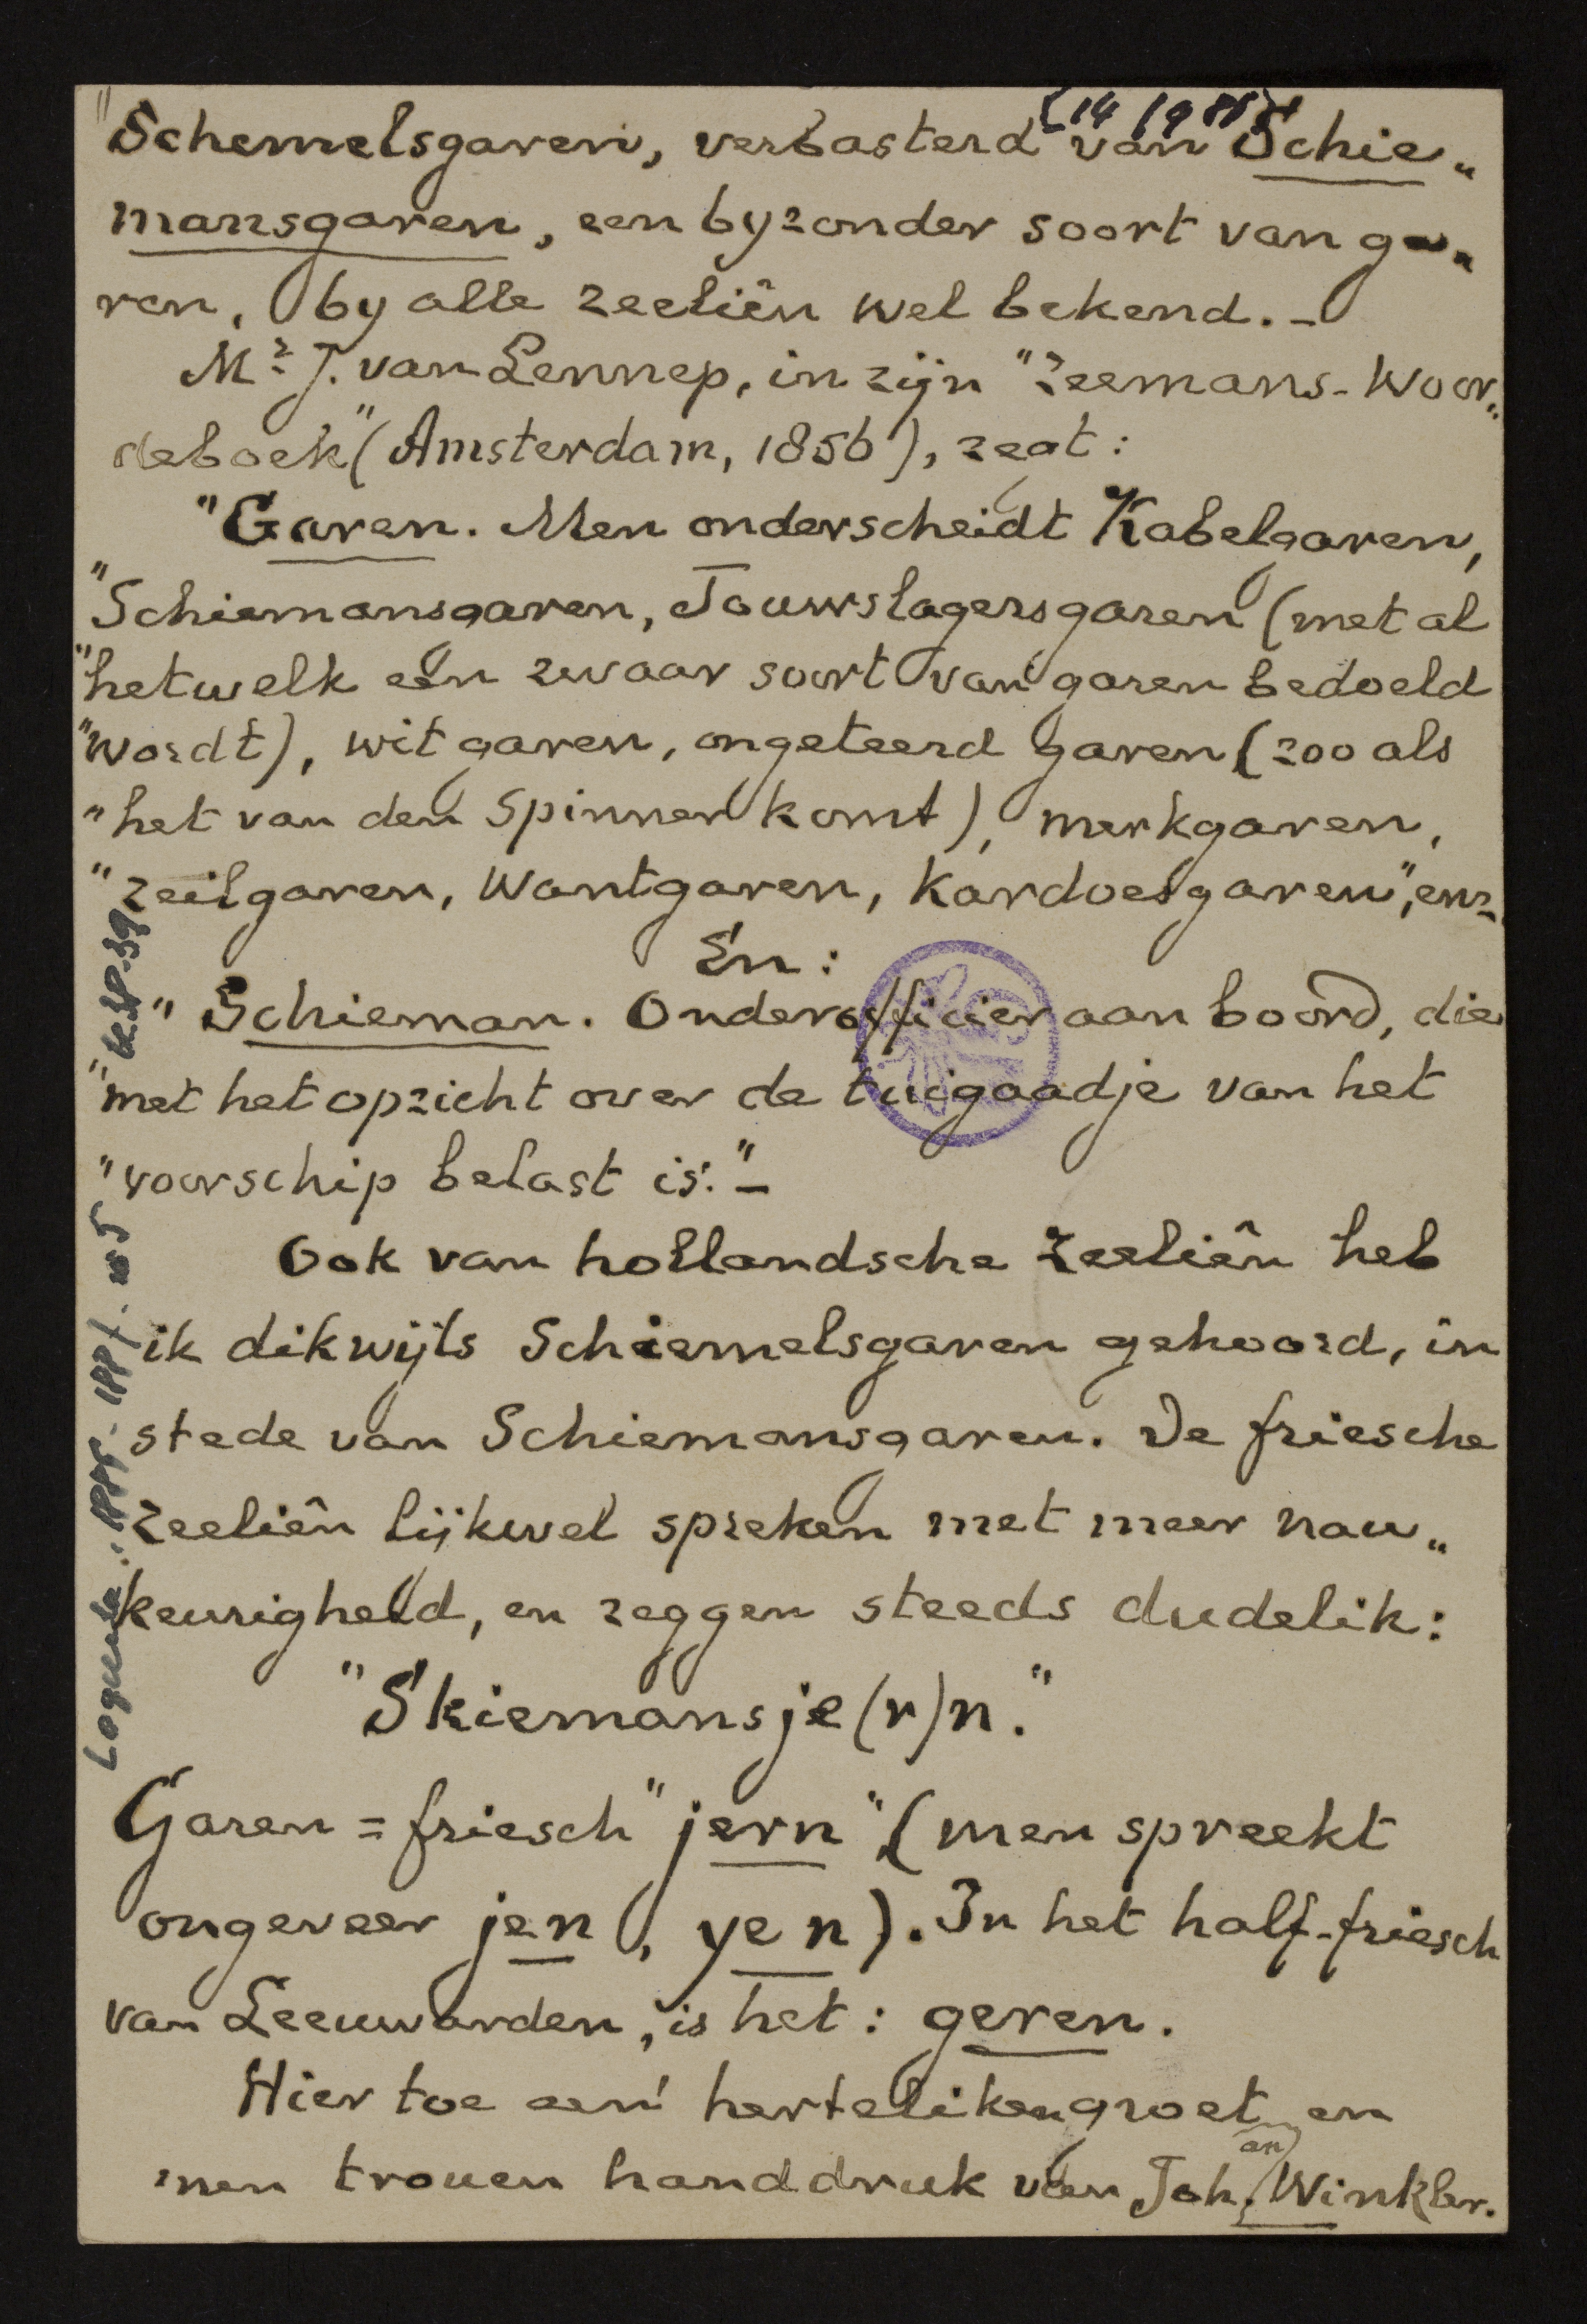 "Schemelsgaren, verbasterd van Schie„
mansgaren, een byzonder soort van ga„
ren, by alle zeeliên wel bekend. –
Mr. J. van Lennep, in zijn "Zeemans-Woor„
deboek" (Amsterdam, 1856), zegt:
"Garen. Men onderscheidt Kabelgaren,
"Schiemansgaren, Touwslagersgaren (met al
"hetwelk een zwaar soort van garen bedoeld
"wordt), wit garen, ongeteerd garen (zoo als
"het van den Spinner komt), merkgaren,
"zeilgaren, Wantgaren, Kardoesgaren", enz.
En:
"Schieman. Onderofficier aan boord, die
"met het opzicht over de tuigaadje van het
"voorschip belast is." –
Ook van hollandsche zeeliên heb
ik dikwijls Schiemelsgaren gehoord, in
stede van Schiemansgaren. De friesche
zeeliên lijkwel spreken met meer nau„
keurigheid, en zeggen steeds dudelik:
"Skiemansje(r)n."
Garen = friesch "jern" (men spreekt
ongeveer jen, yen). In het half-friesch
van Leeuwarden, is het: geren.
Hier toe een' hertelikengroet en
'nen trouen handdruk van Joh. Winkler.
an